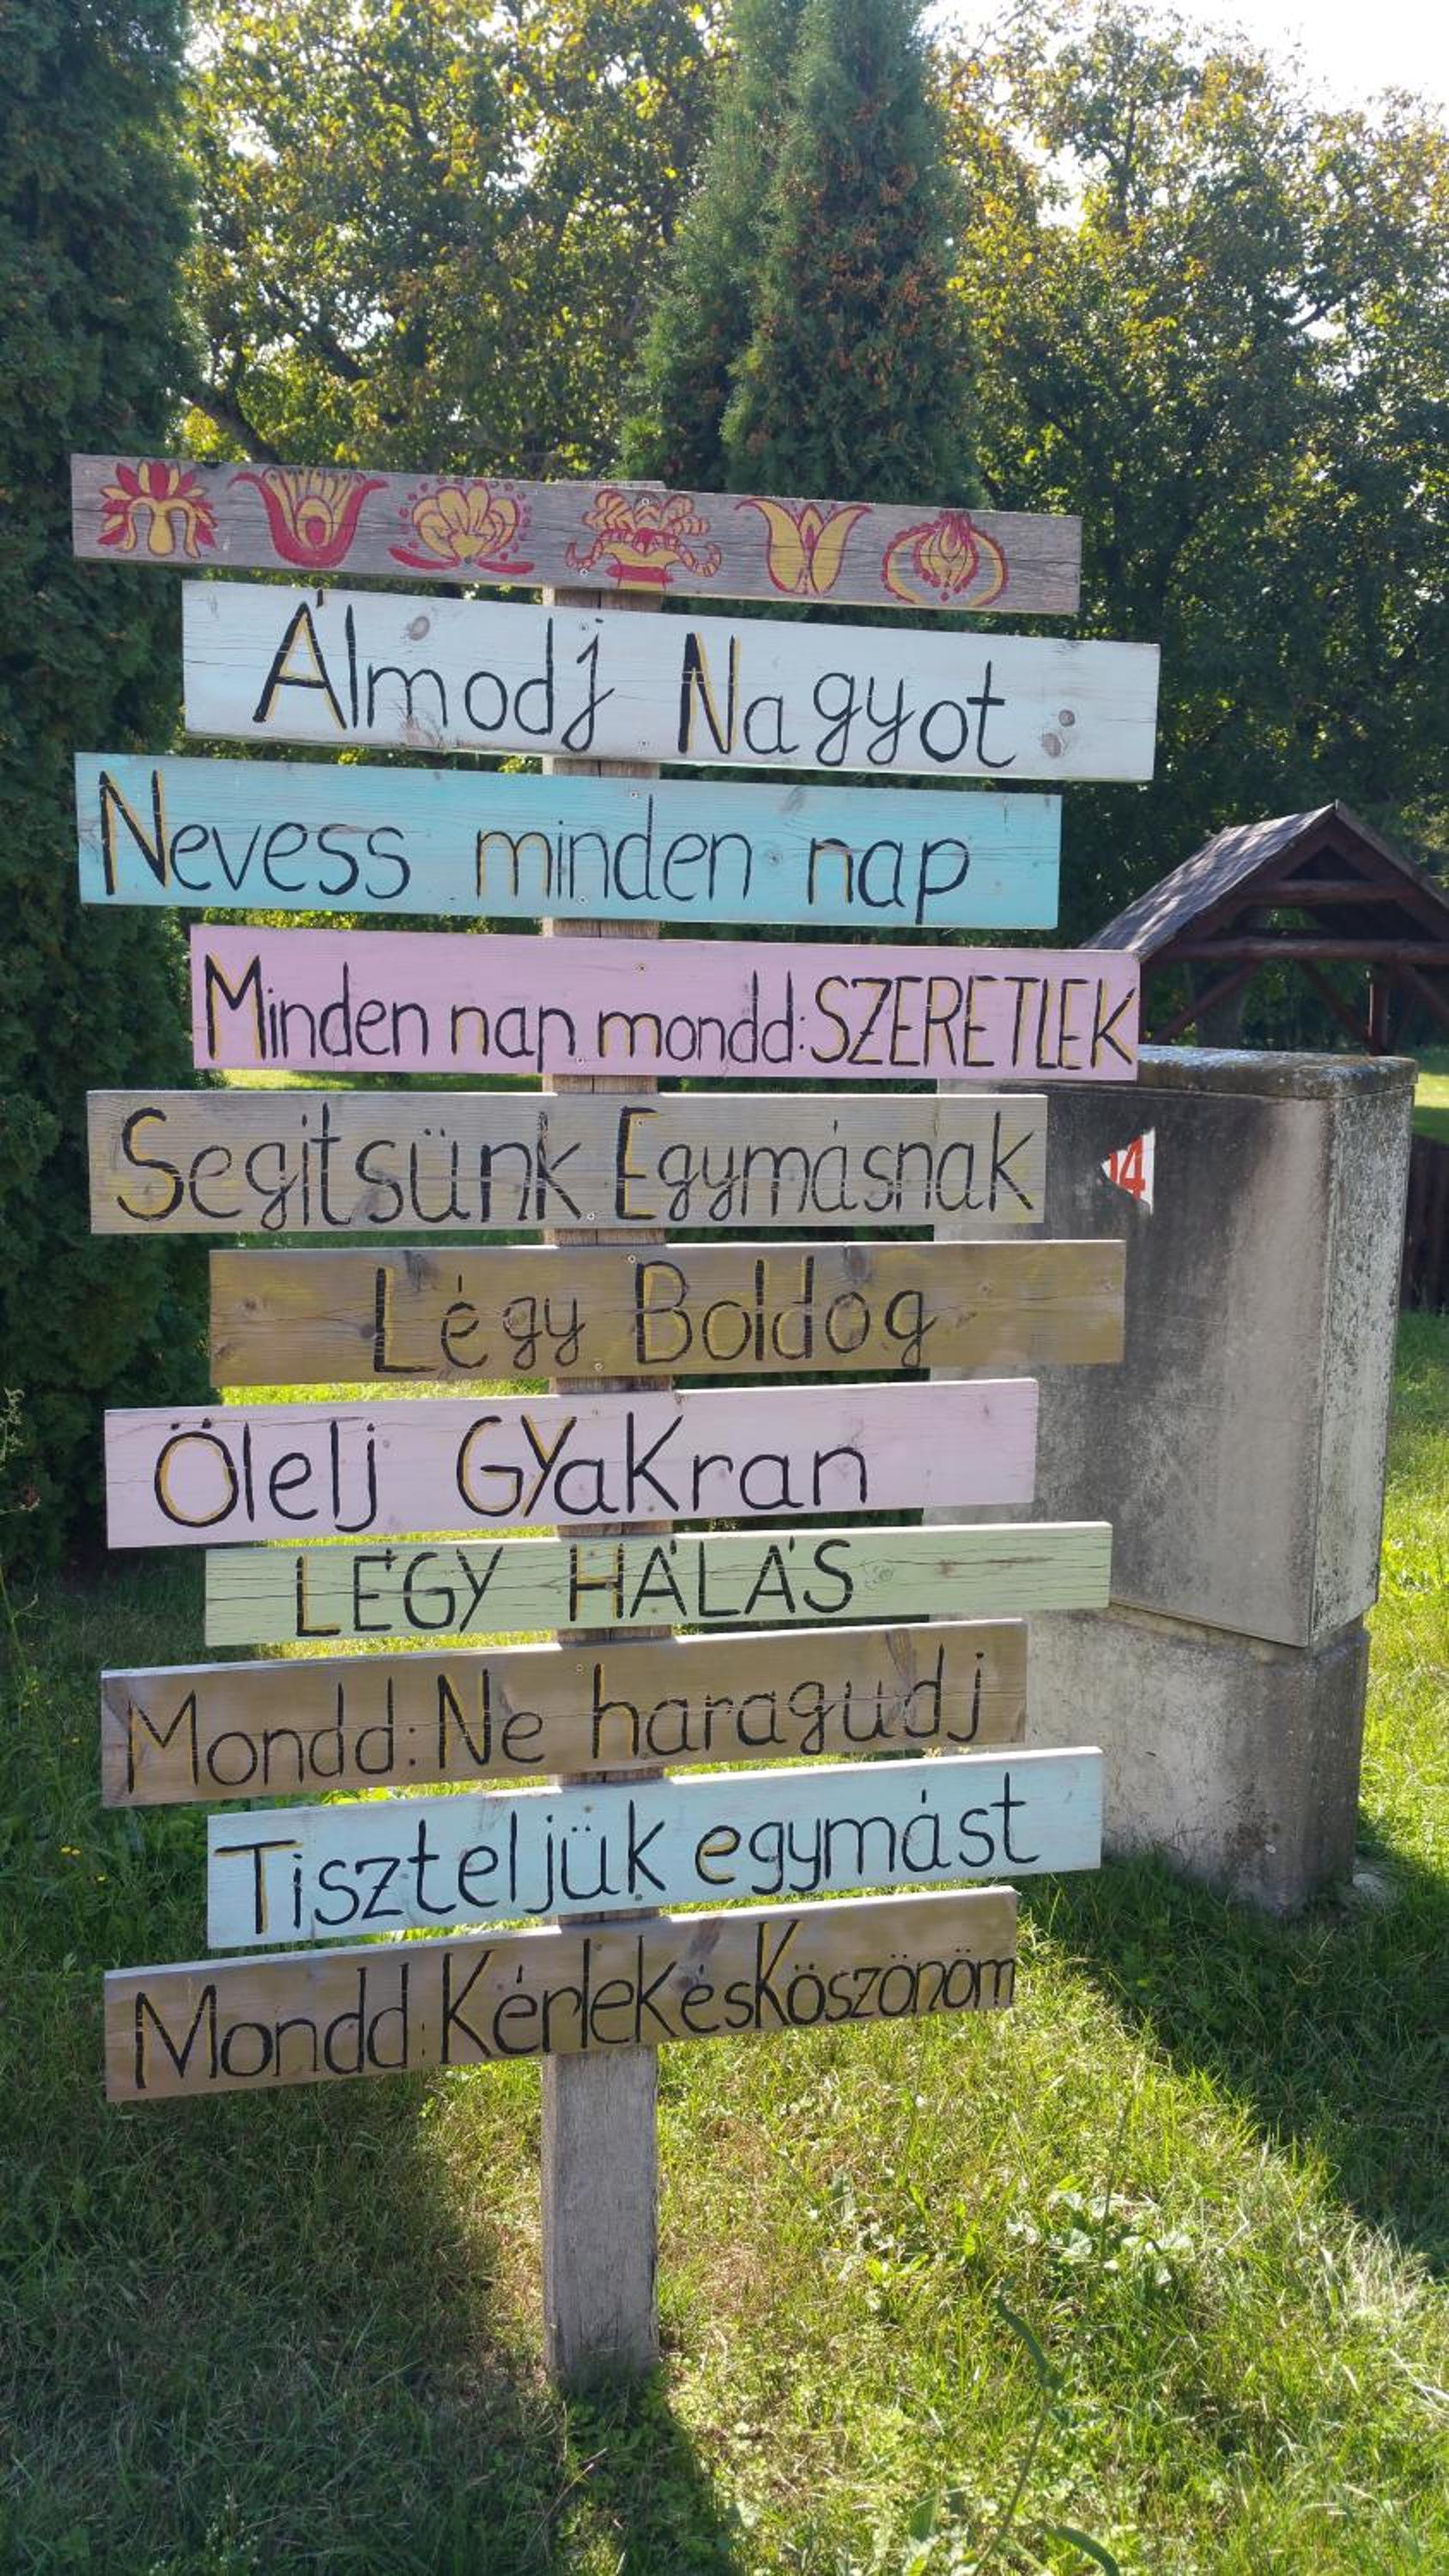 Álmodj Nagyot
Nevess minden nap
Minden nap mondd: SZERETLEK
Segitsünk Egymásnak
14
Légy Boldog
Ölelj GYaKran
LÉGY HÁLÁS
Mondd: Ne haragudj
Tiszteljük egymást
Mondd: Kérlek és Köszönöm